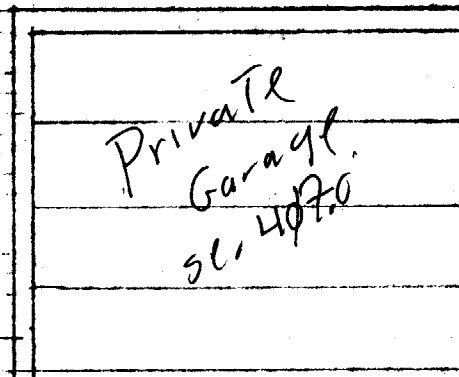 Private
Garage
se. 407.0